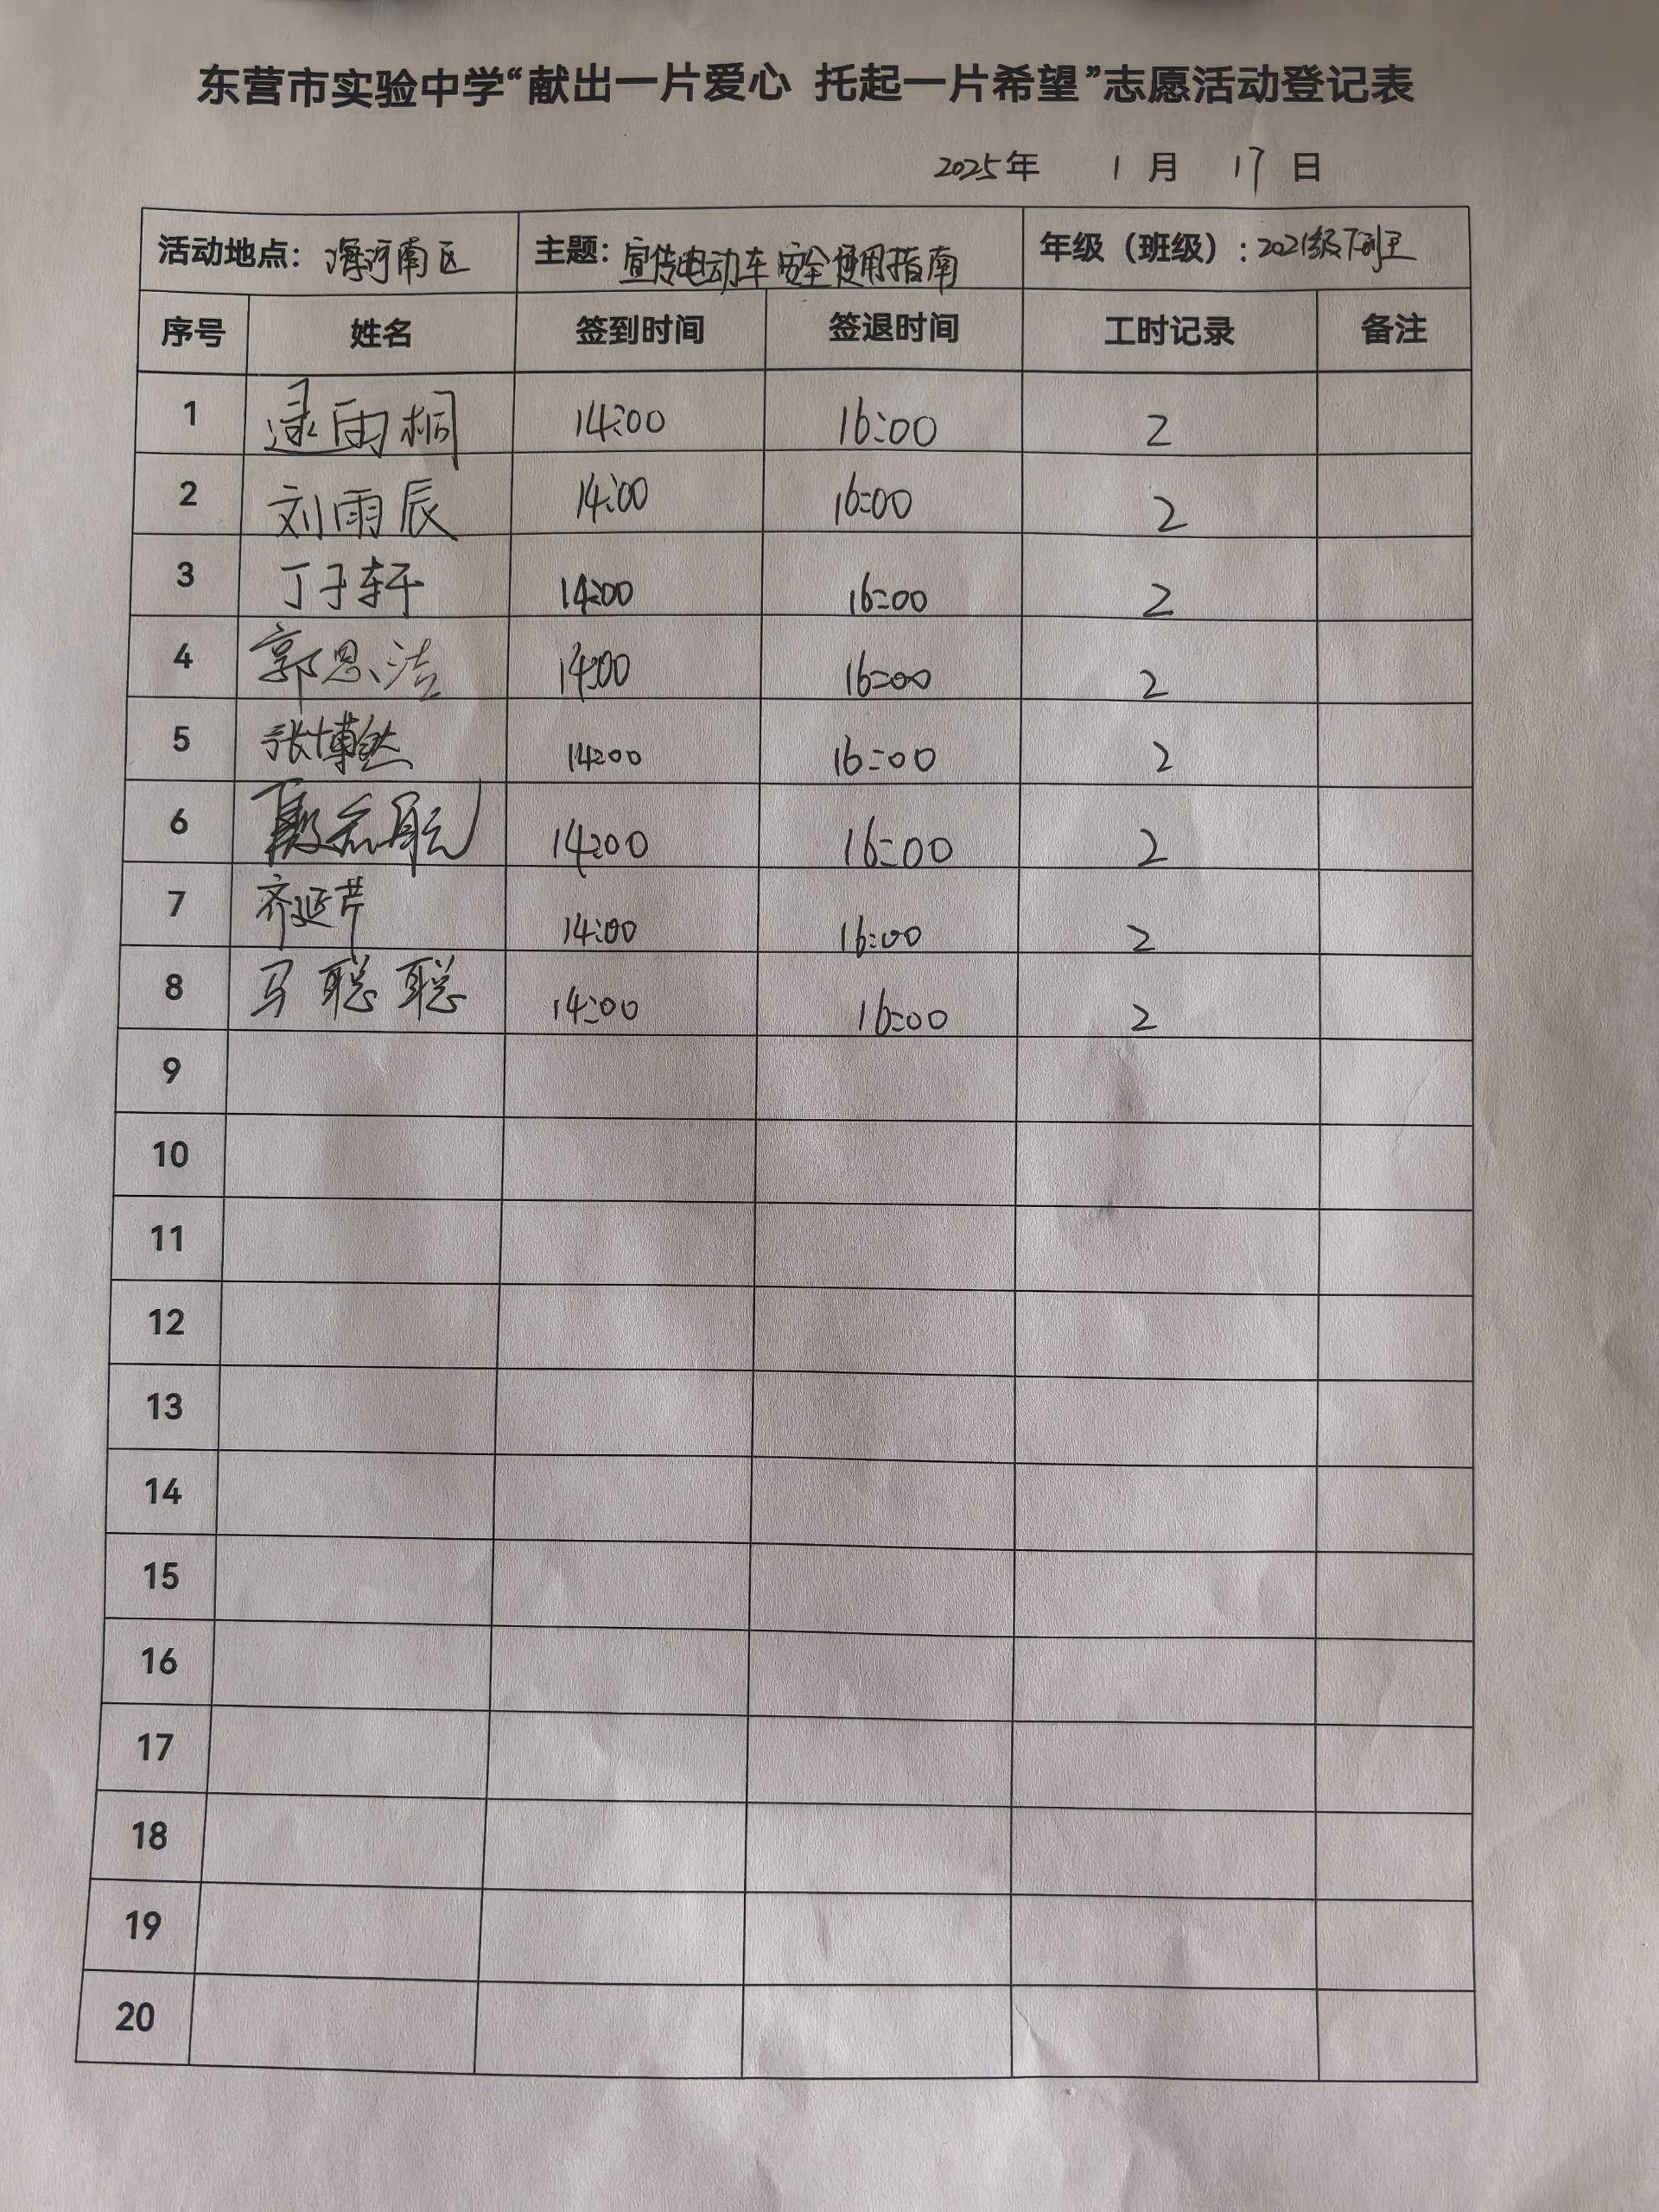 东营市实验中学“献出一片爱心 托起一片希望”志愿活动登记表
2025年 1月 17日
活动地点：海河南区 主题：宣传电动车安全使用指南 年级（班级）：2021级
序号 姓名 签到时间 签退时间 工时记录 备注
1 逯雨桐 14:00 16:00 2
2 刘雨辰 14:00 16:00 2
3 丁子轩 14:00 16:00 2
4 郭恩洁 14:00 16:00 2
5 张博然 14:00 16:00 2
6 14:00 16:00 2
7 齐延芹 14:00 16:00 2
8 马聪聪 14:00 16:00 2
9
10
11
12
13
14
15
16
17
18
19
20